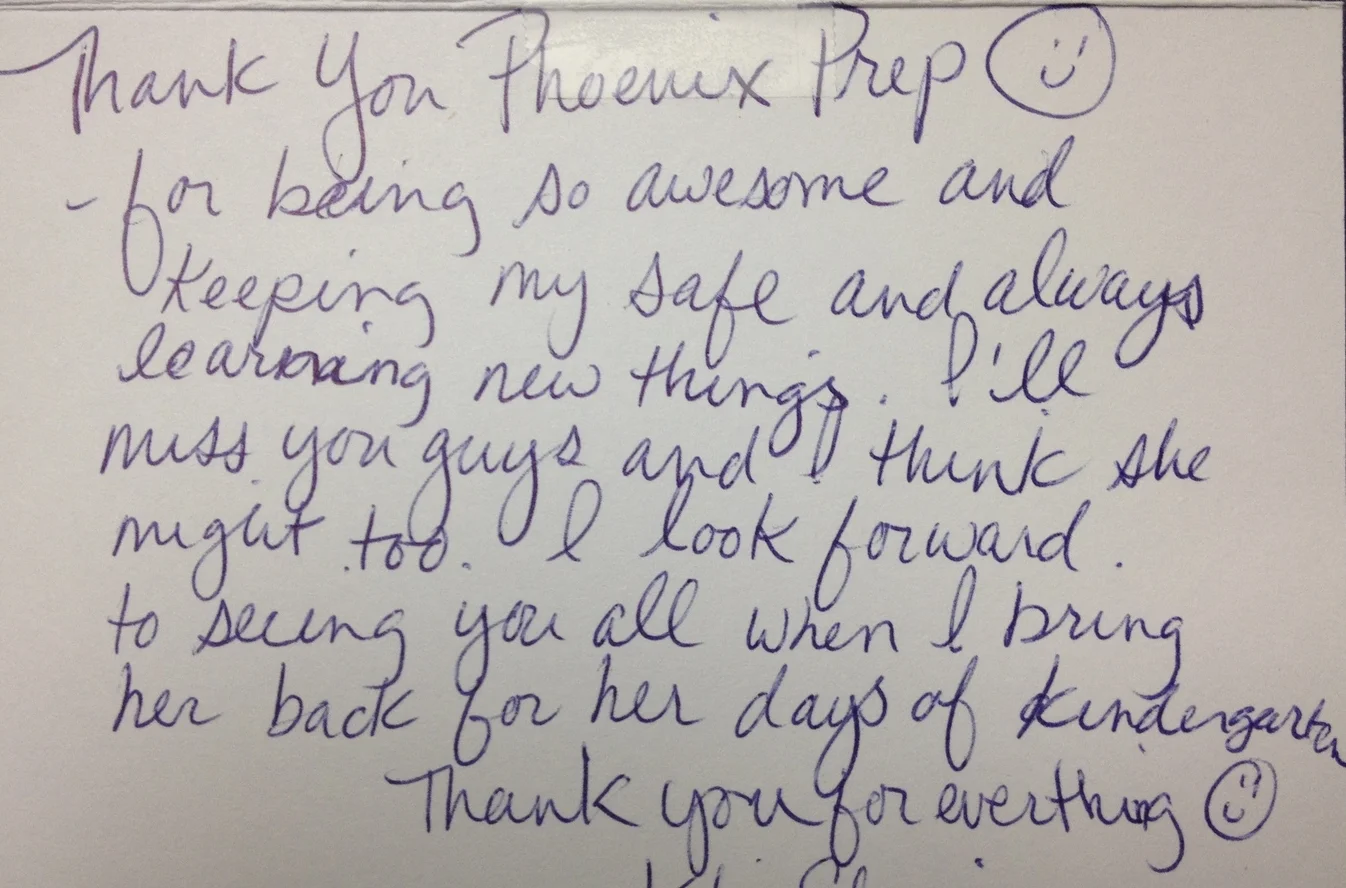 Thank You Phoenix Prep
- for being so awesome and
keeping my safe and always
learning new things. I'll
miss you guys and I think she
might too. I look forward
to seeing you all when I bring
her back for her days of kindergarten
Thank you for everthing